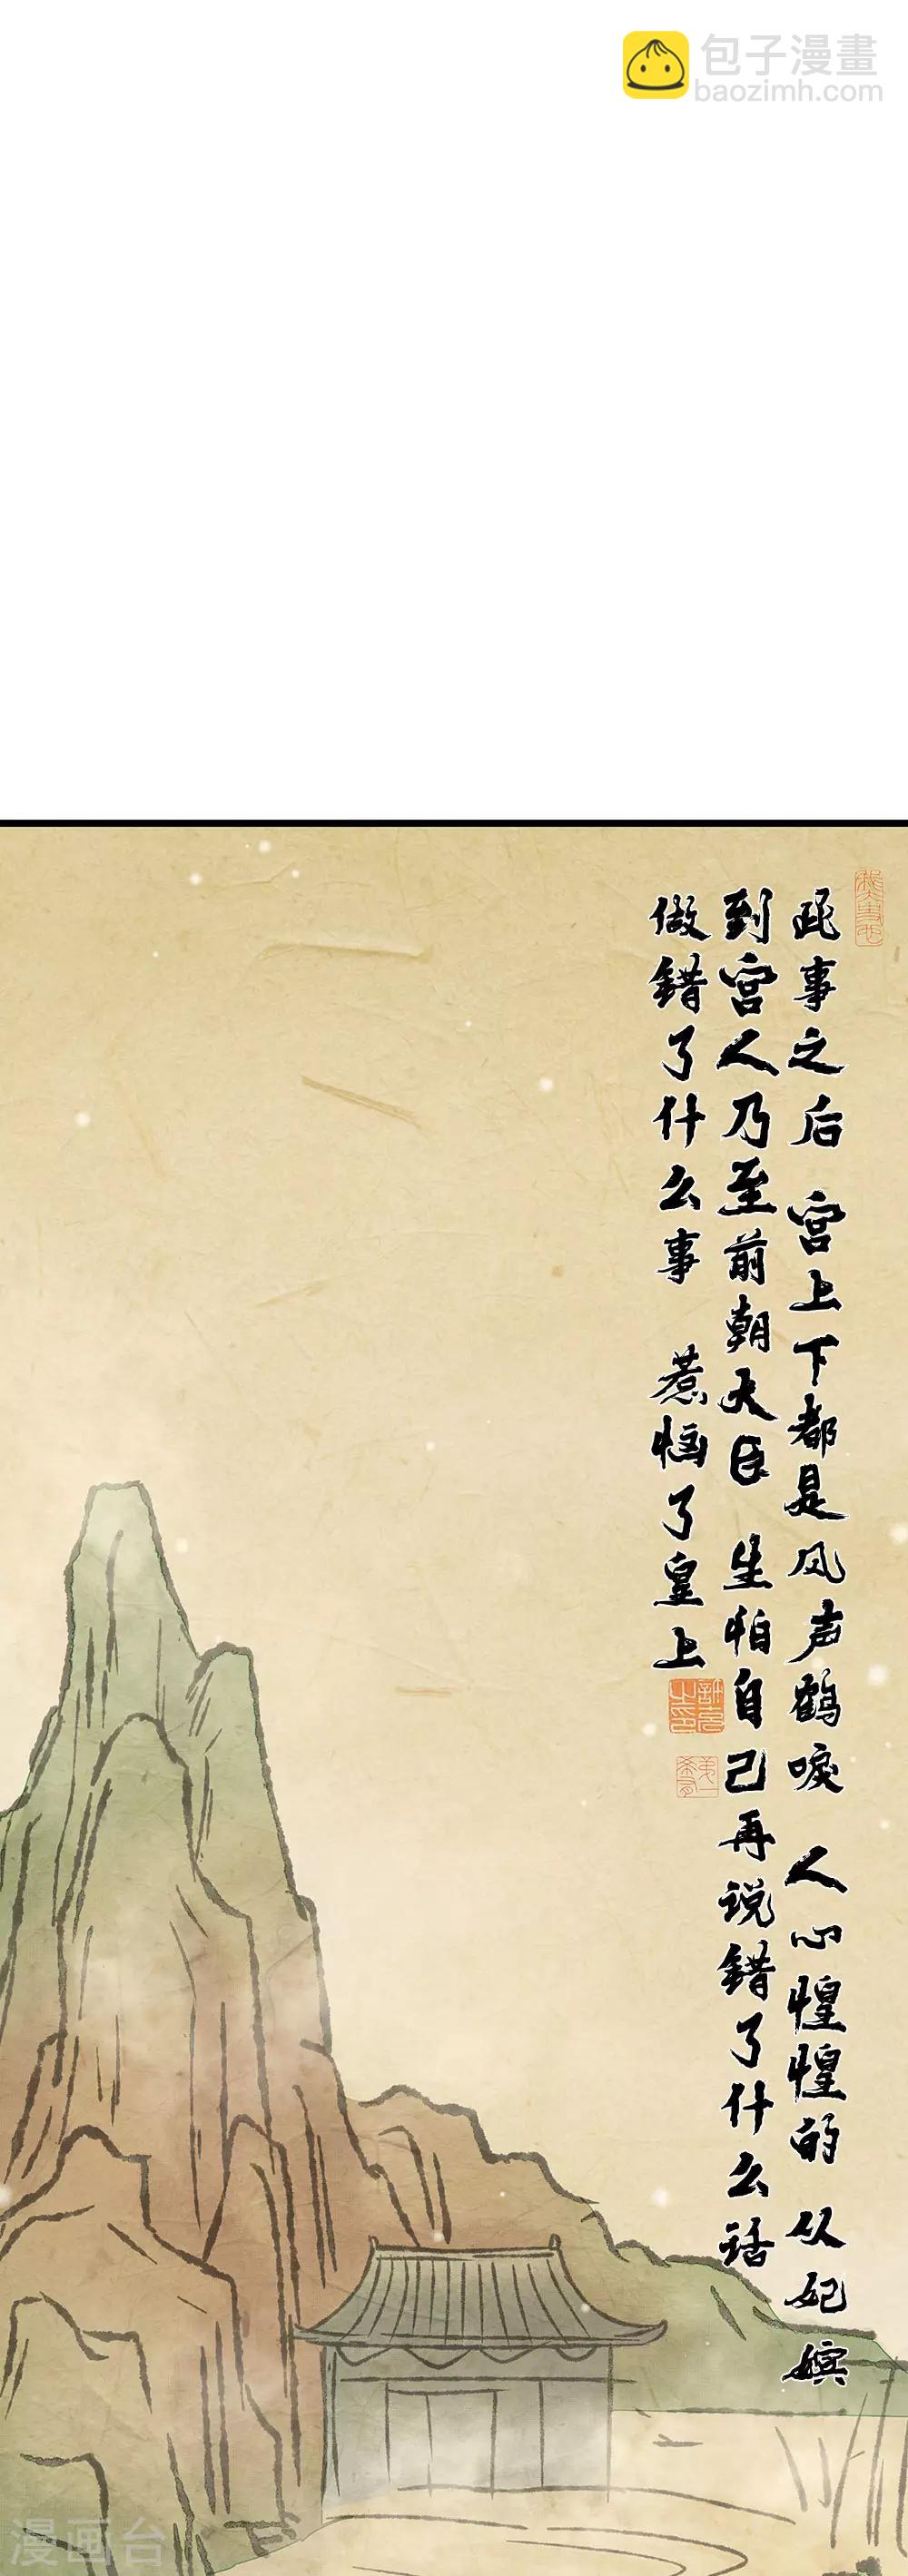 包子漫畫
baozimh.com
此事之后 宫上下都是风声鹤唳 人心惶惶的 从妃嫔
到宫人乃至前朝大臣 生怕自己再说错了什么话
做错了什么事 惹恼了皇上
漫画台